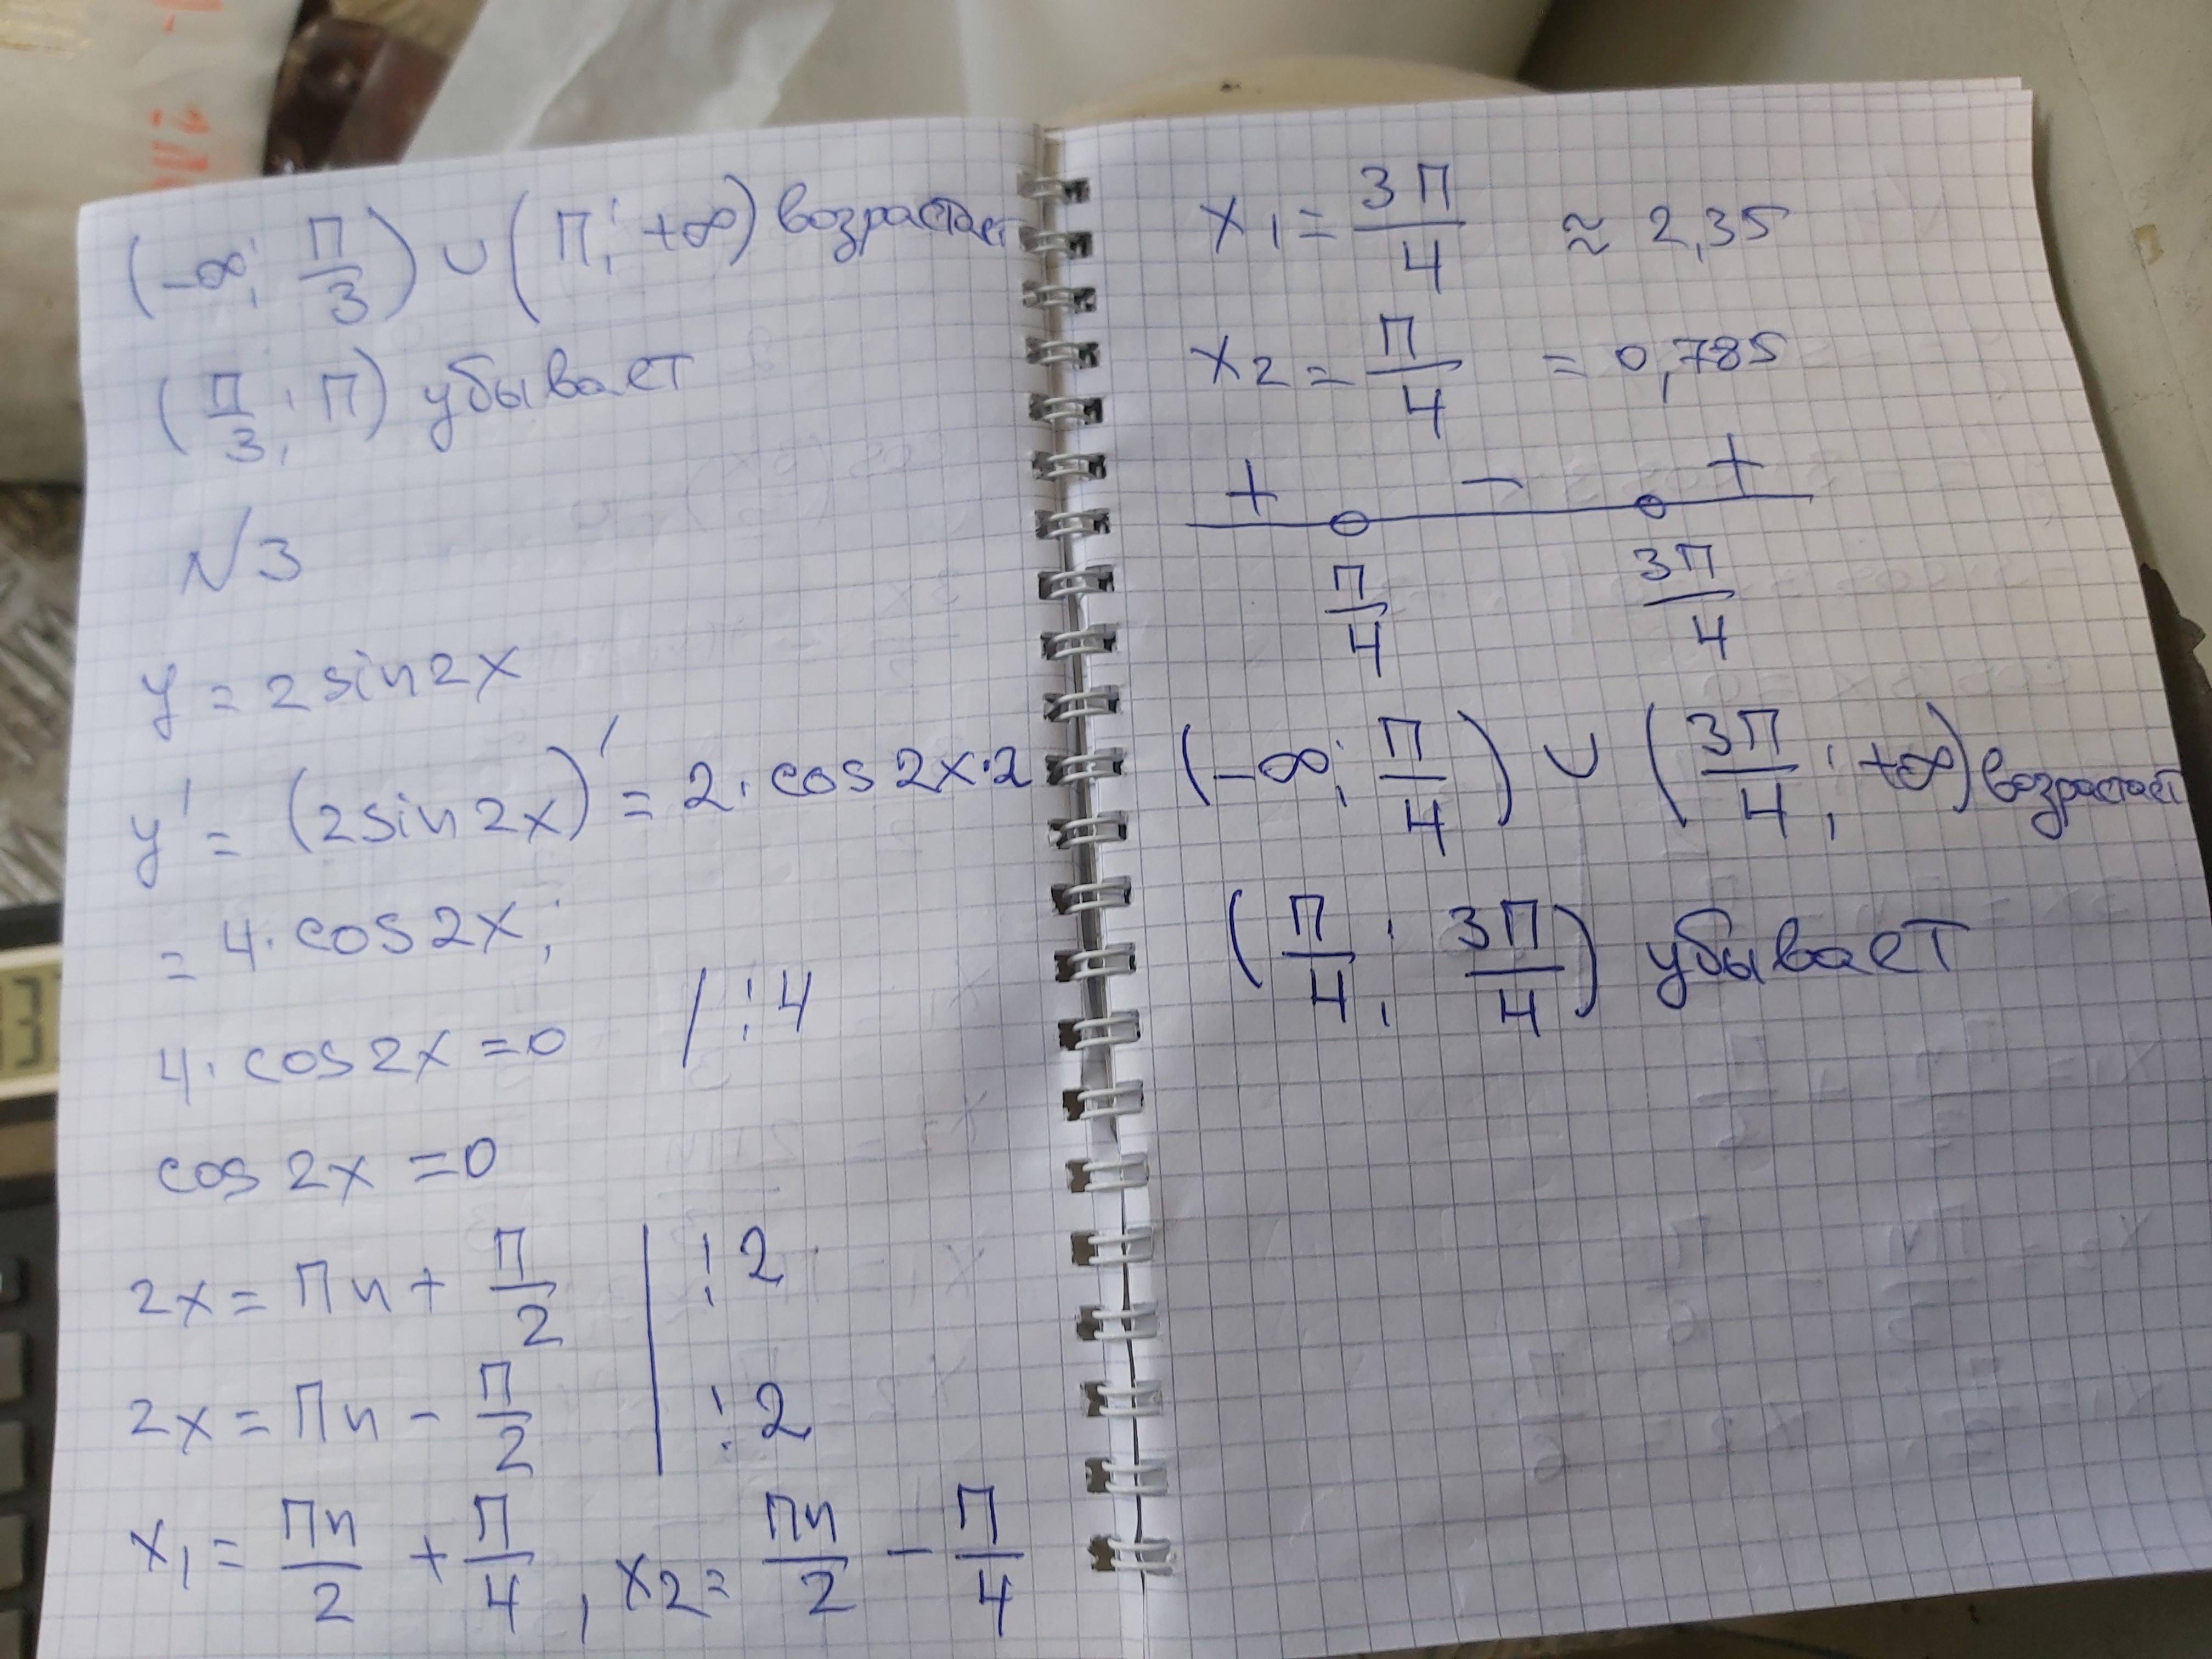 (-∞; П/3) ∪ (П; +∞) возрастает
(П/3; П) убывает
N3
y = 2sin2x
y' = (2sin2x)' = 2·cos2x·2
= 4·cos2x;
4·cos2x=0 /:4
cos2x=0
2x = Пn + П/2 | :2
2x = Пn - П/2 | :2
x1 = Пn/2 + П/4, x2 = Пn/2 - П/4
x1 = 3П/4 ≈ 2,35
x2 = П/4 = 0,785
+ - +
П/4 3П/4
(-∞; П/4) ∪ (3П/4; +∞) возрастает
(П/4; 3П/4) убывает